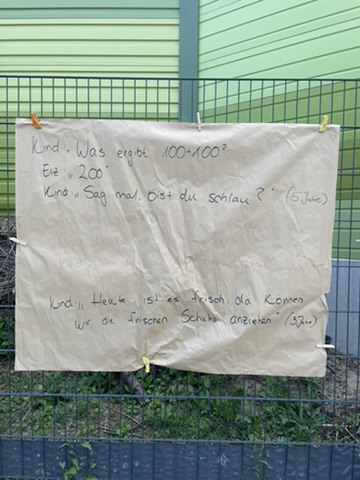 Kind „Was ergibt 100+100?
Erz „200"
Kind „Sag mal, bist du schlau?" (5 Jahre)
Kind „Heute ist es frisch, da können
wir die frischen Schuhe anziehen" (3 Jahre)